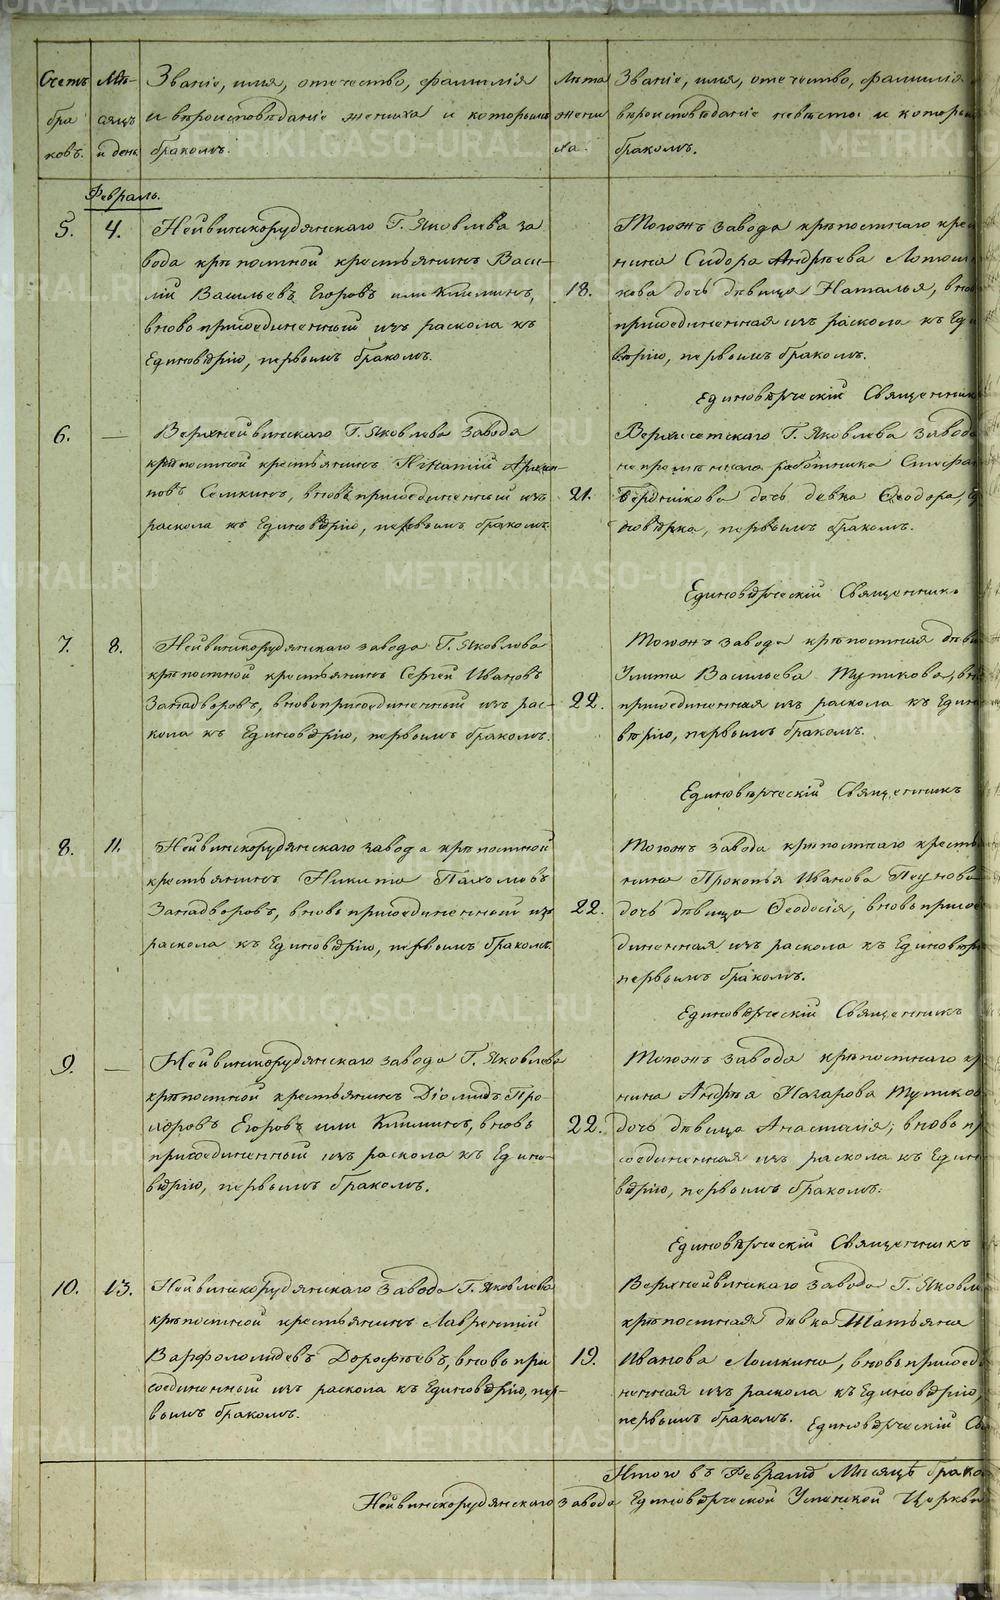 Счетъ бра ковъ.
Мѣ- сяцъ и день
Званіе, имя, отечество, фамилія
и вѣроисповѣданіе жениха и которымъ
бракомъ.
Лѣта жени ха.
Званіе, имя, отечество, фамилія
вѣроисповѣданіе невѣсты и которы
бракомъ.
Февраль.
5. 4.
Нейвинскорудянскаго Г. Яковлева за
вода крѣпостной крестьянинъ Васи-
лій Васильевъ Егоровъ или Климинъ,
вновь присоединенный изъ раскола къ
Единовѣрію, первымъ бракомъ.
18.
Тогожъ завода крѣпостнаго кре
нина Сидора Андрѣева
кова дочь дѣвица Наталья, вно
присоединенная изъ раскола къ Ед
вѣрію, первымъ бракомъ.
Единовѣрческій Священник
6. —
Верхнейвинскаго Г. Яковлева завода
крѣпостной крестьянинъ Игнатій Архи-
повъ Семкинъ, вновь присоединенный изъ
раскола къ Единовѣрію, первымъ бракомъ.
21.
Верхисетскаго Г. Яковлева завода
непремѣннаго работника Стефа
Бердникова дочь девка Ѳеодора, Е
новѣрка, первымъ бракомъ.
Единовѣрческій Священник
7. 8.
Нейвинскорудянскаго завода Г. Яковлева
крѣпостной крестьянинъ Сергей Ивановъ
Западворовъ, вновь присоединенный изъ рас-
кола къ Единовѣрію, первымъ бракомъ.
22.
Тогожъ завода крѣпостная дѣви
Улита Васильева Тупикова, вно
присоединенная изъ раскола къ Един
вѣрію, первымъ бракомъ.
Единовѣрческій Священникъ
8. 11.
Нейвинскорудянскаго завода крѣпостной
крестьянинъ Никита Пахомовъ
Западворовъ, вновь присоединенный изъ
раскола къ Единовѣрію, первымъ бракомъ.
22.
Тогожъ завода крѣпостнаго кресть
нина Прокопья Иванова
дочь дѣвица Ѳеодосія, вновь присое
диненная изъ раскола къ Единовѣр
первымъ бракомъ.
Единовѣрческій Священникъ
9. —
Нейвинскорудянскаго завода Г. Яковлева
крѣпостной крестьянинъ Діомидъ Про-
хоровъ Егоровъ или Климинъ, вновь
присоединенный изъ раскола къ Едино-
вѣрію, первымъ бракомъ.
22.
Тогожъ завода крѣпостнаго кр
нина Андрѣя Назарова Тупиков
дочь дѣвица Анастасія, вновь пр
соединенная изъ раскола къ Един
вѣрію, первымъ бракомъ.
Единовѣрческій Священникъ
10. 13.
Нейвинскорудянскаго завода Г. Яковлева
крѣпостной крестьянинъ Лаврентій
Варфоломѣевъ Дорофѣевъ, вновь при
соединенный изъ раскола къ Единовѣрію, пер-
вымъ бракомъ.
19.
Верхнейвинскаго завода Г. Яковл
крѣпостная дѣвка Татьяна
Иванова Лошкина, вновь присоед
ненная изъ раскола къ Единовѣрію,
первымъ бракомъ. Единовѣрческій Св
Итого въ Февралѣ Мѣсяцѣ брако
Нейвинскорудянскаго завода Единовѣрческой Успенской Церкви
METRIKI.GASO-URAL.RU